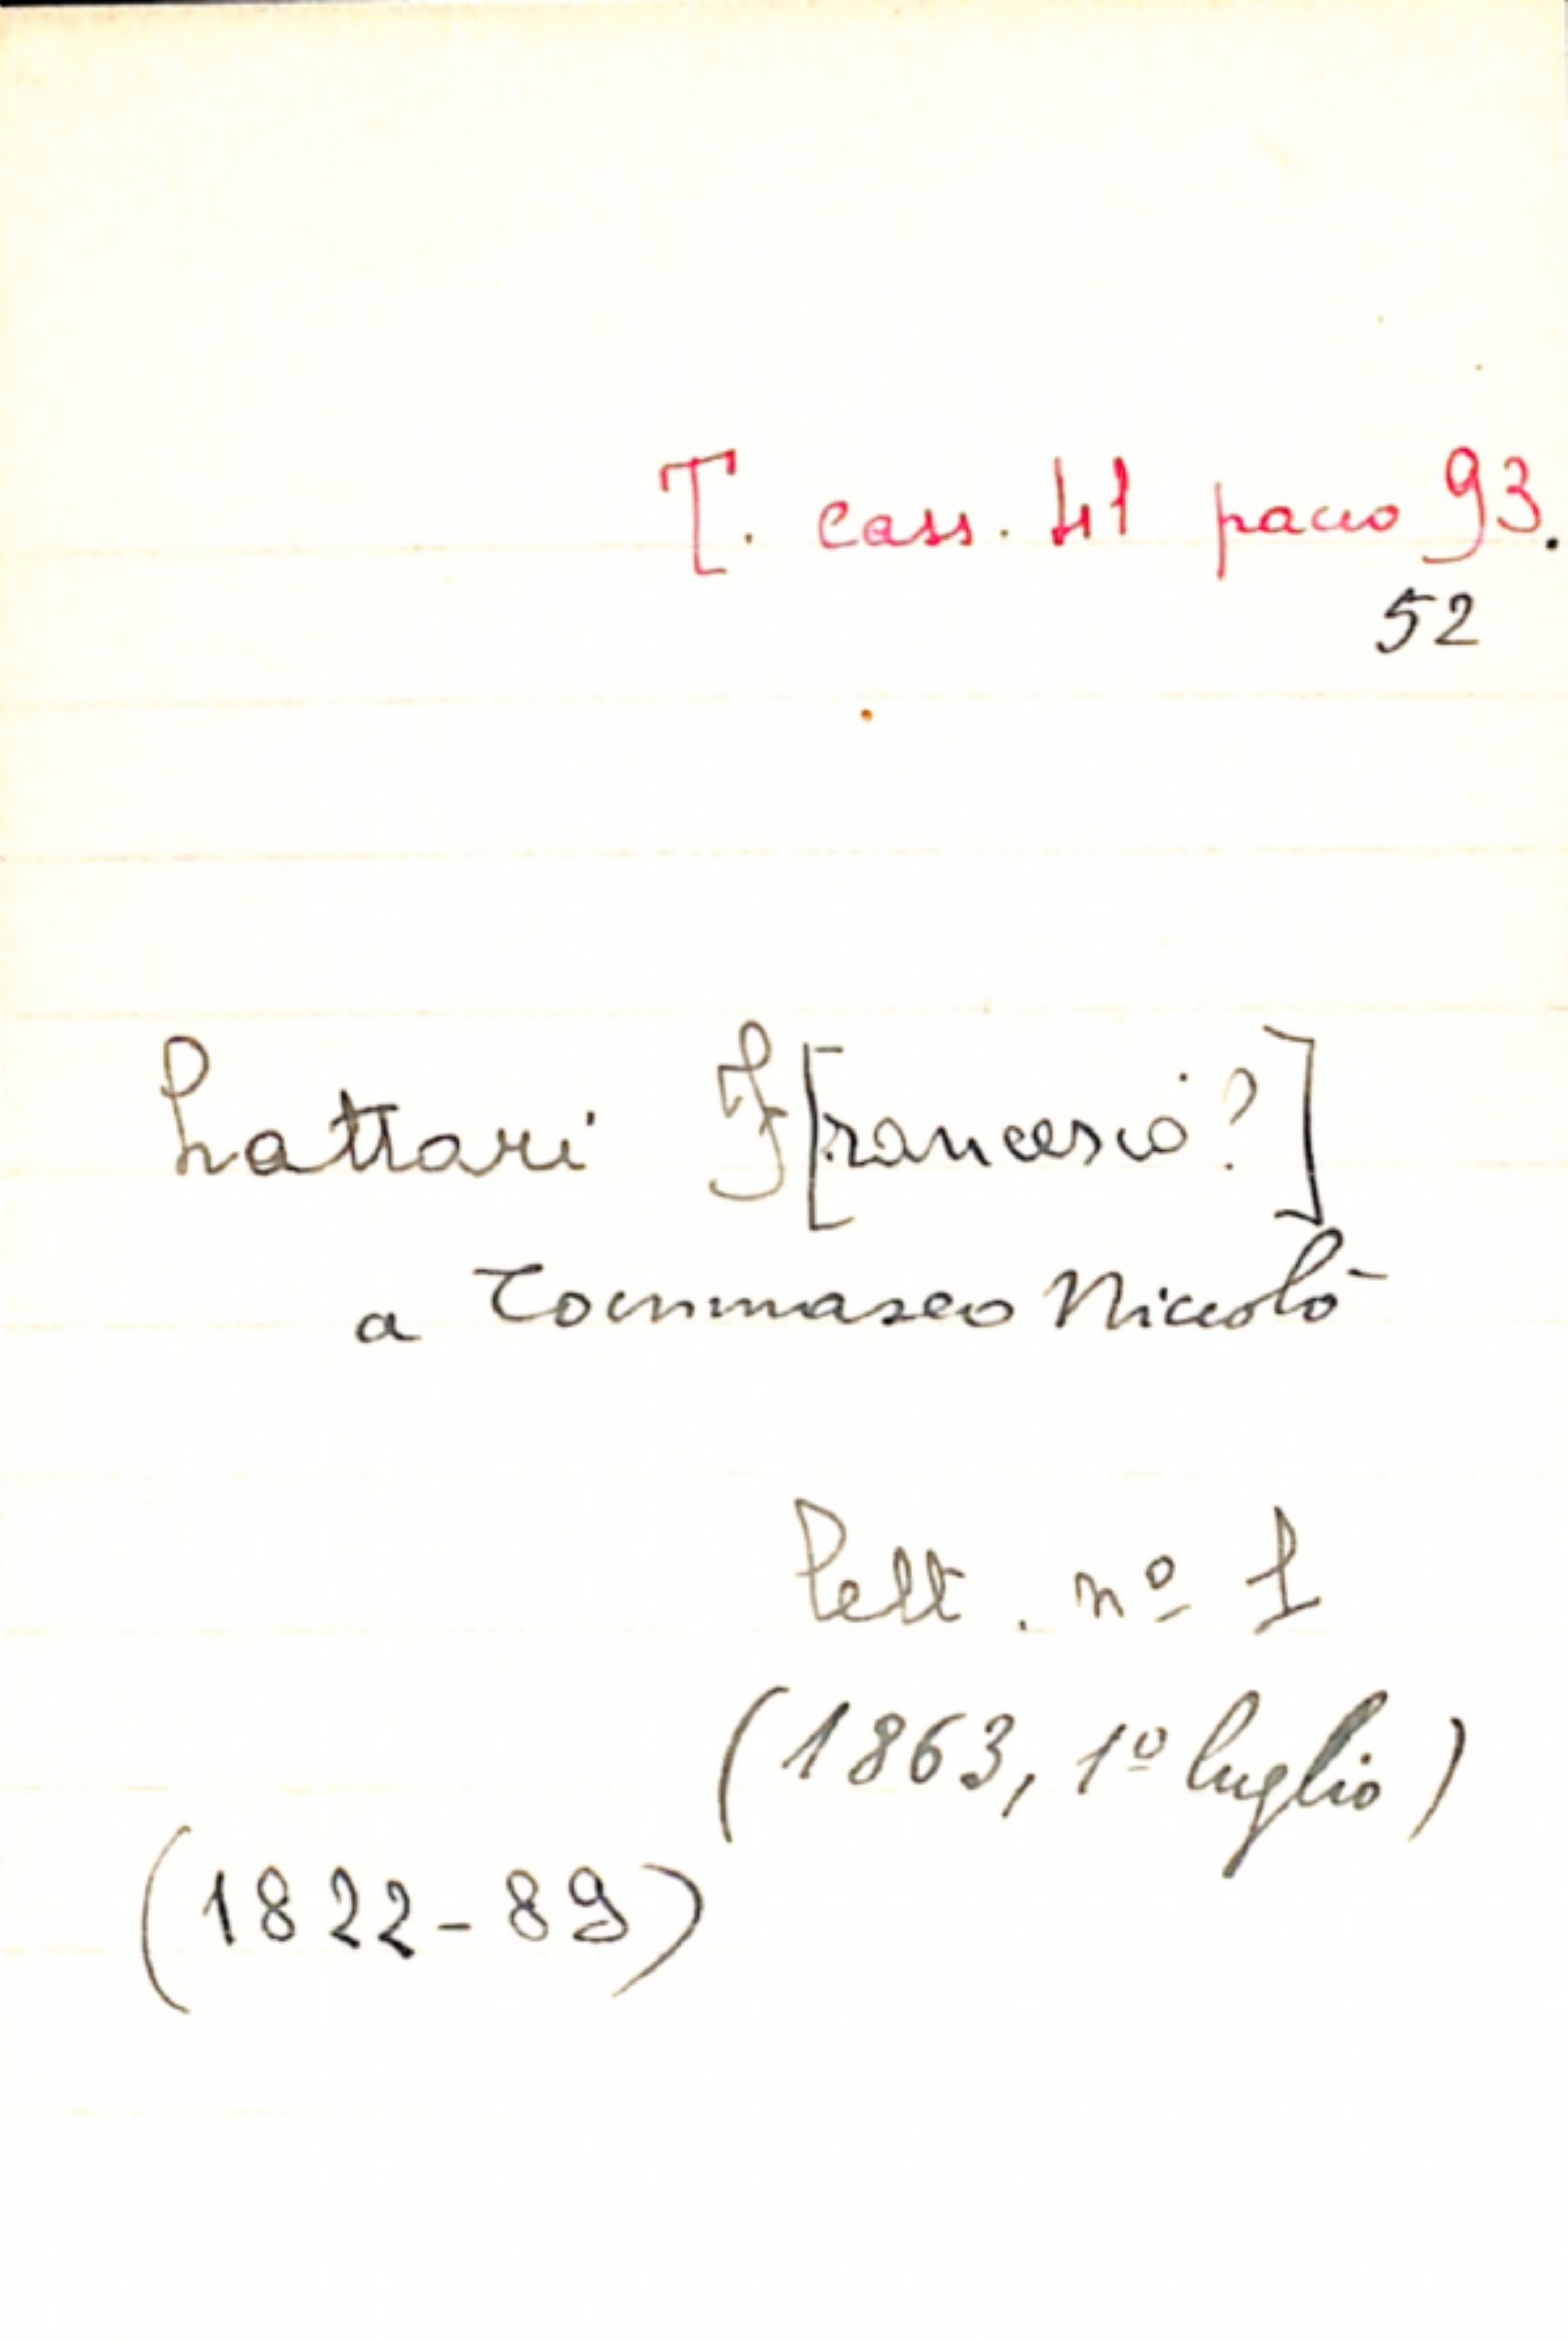 T. cass. 41 pacco 93.
52
Lattari F[rancesco?]
a Tommaseo Niccolò
Lett. nº 1
(1863, 1º luglio)
(1822-89)